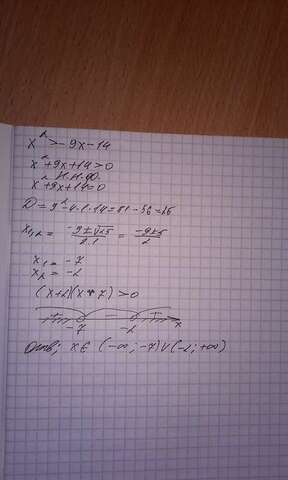 x² > -9x-14
x²+9x+14>0
Н.Н.Ф.
x²+9x+14=0
D=9²-4·1·14=81-56=25
x₁,₂ = (-9±√25)/(2·1) = (-9±5)/2
x₁=-7
x₂=-2
(x+2)(x+7)>0
+ -7 - -2 + x
Отв; x∈ (-∞;-7)∪(-2;+∞)